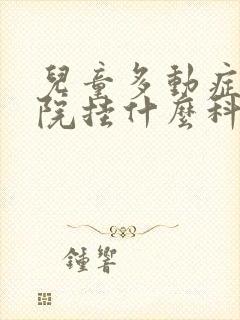 兒童多動症
院挂什麼科
鍾響